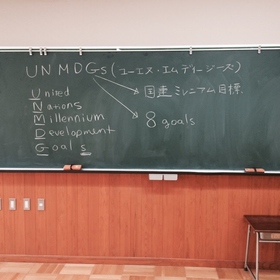 UNMDGs (ユーエス・エムディージーズ)
United
Nations
Millennium
Development
Goals
国連ミレニアム目標
8 goals